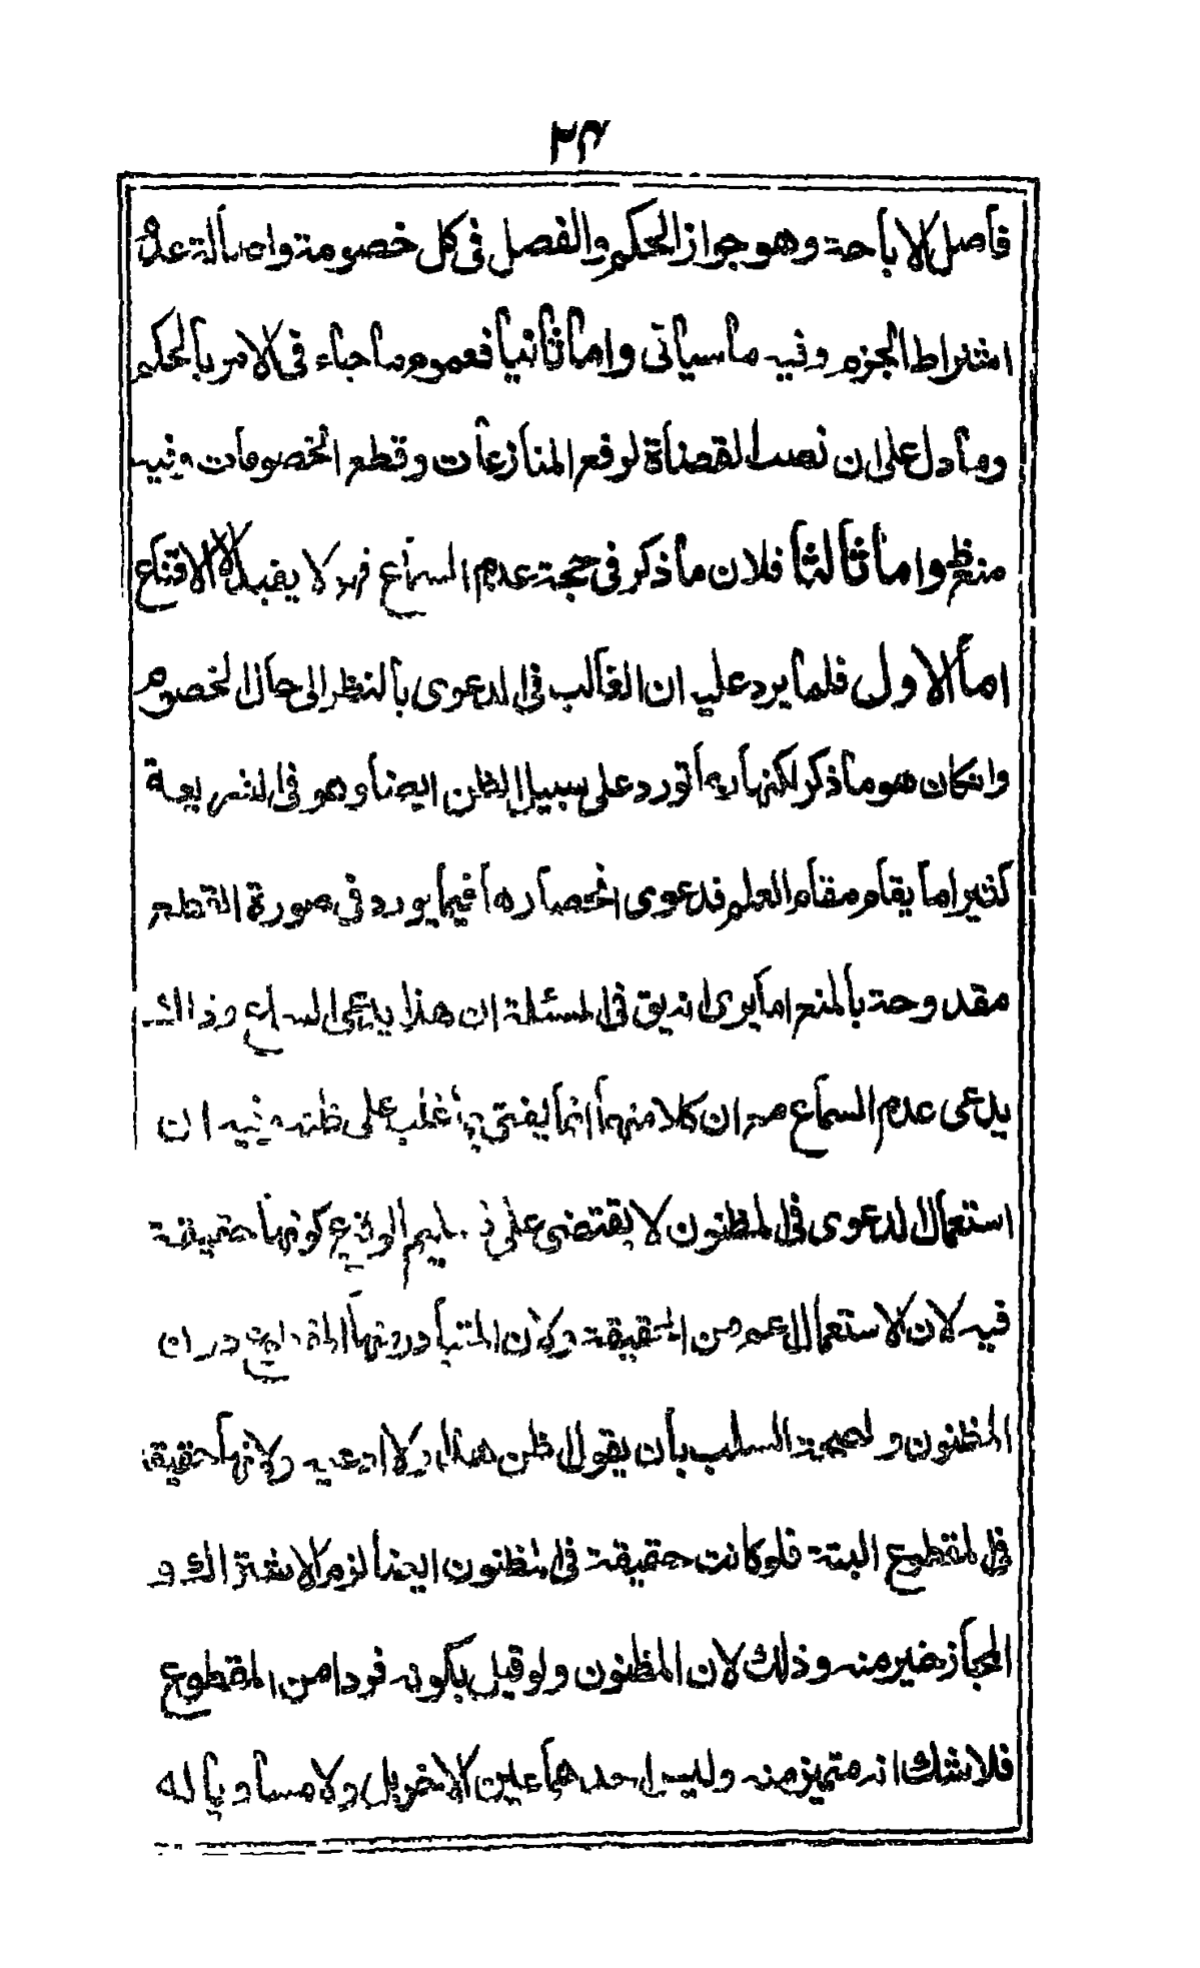 ٢٤
فأصل الاباحة وهو جواز الحكم والفصل في كل خصومة واصالة عدم
اشتراط الجزم وفيه ما سيأتى واما ثانيا فعموم ما جاء في الامر بالحكم
وما دل على ان نصب القضاة لرفع المنازعات وقطع الخصومات وفيه
منع ظ واما ثالثا فلان ما ذكر في حجة عدم السماع فهو لا يفيد الا الاقناع
اما الاول فلما يرد عليه ان الغالب في الدعوى بالنظر الى حال الخصوم
وانكان هو ما ذكر لكنها ربما تورد على سبيل الظن ايضا وهو في الشريعة
كثيرا ما يقام مقام العلم فدعوى انحصارها فيما يورد في صورة القطع
مقدوحة بالمنع اما يرى انه يق في المسئلة ان هذا يدعى السماع وذالك
يدعى عدم السماع مع ان كلا منهما انما يفتى بما غلب على ظنه وفيه ان
استعمال الدعوى في المظنون لا يقتضى على تسليم الوقوع كونها حقيقة
فيه لان الاستعمال اعم من الحقيقة ولان المتبادر منها المقطوع دون
المظنون ولصحة السلب بان يقول اظن هذا ولا ادعيه ولانها حقيقة
في المقطوع البتة فلو كانت حقيقة في المظنون ايضا لزم الاشتراك و
المجاز خير منه وذلك لان المظنون ولو قيل بكونه فردا من المقطوع
فلا شك انه متميز منه وليس احدهما عين الاخر بل ولا مساويا له